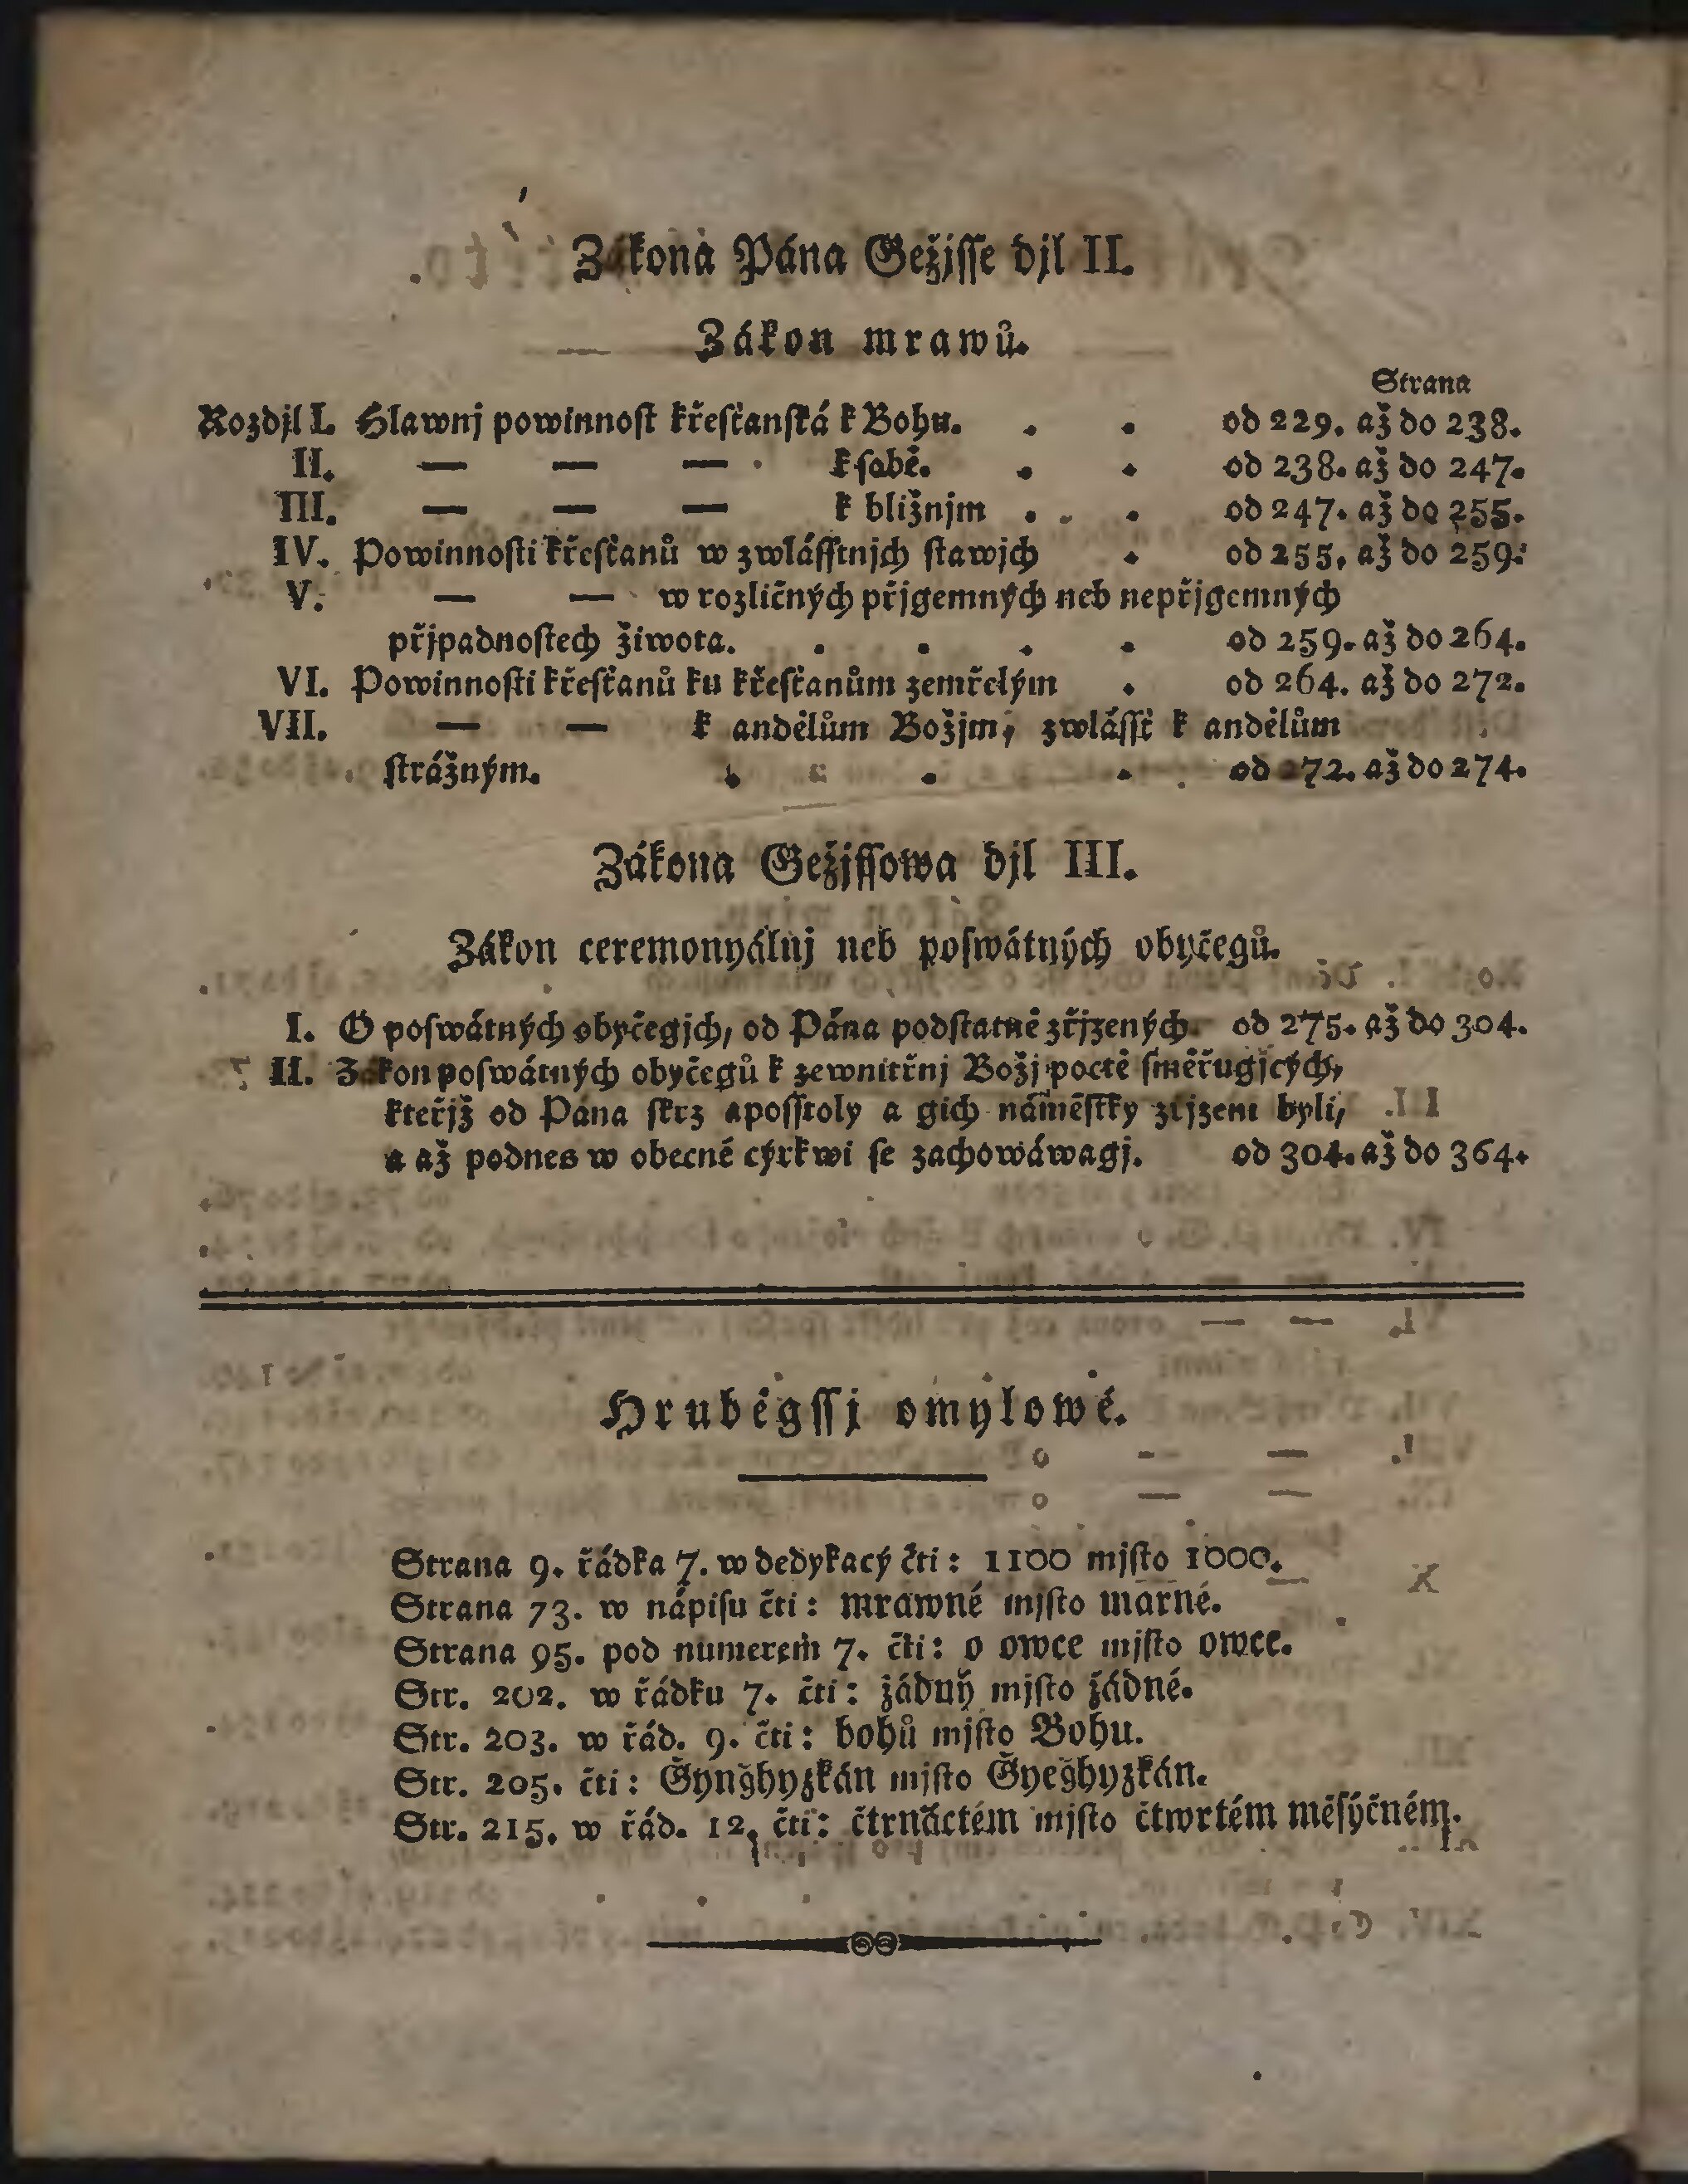 Zákona Pána Gežjſſe djl II.
Zákon mrawů.
Strana
Rozdjl I. Hlawnj powinnoſt křeſťanſká k Bohu. . . od 229. až do 238.
II. — — — k ſobě. . . od 238. až do 247.
III. — — — k bližnjm . . od 247. až do 255.
IV. Powinnoſti křeſťanů w zwláſſtnjch ſtawjch . od 255. až do 259.
V. — — w rozličných přjgemných neb nepřjgemných
přjpadnoſtech žiwota. . . . . od 259. až do 264.
VI. Powinnoſti křeſťanů ku křeſťanům zemřelým . od 264. až do 272.
VII. — — k andělům Božjm, zwláſſť k andělům
ſtrážným. . . . . od 272. až do 274.
Zákona Gežjſſowa djl III.
Zákon ceremonyálnj neb poſwátných obyčegů.
I. O poſwátných obyčegjch, od Pána podſtatně zřjzených. od 275. až do 304.
II. Zákon poſwátných obyčegů k zewnitřnj Božj poctě ſměřugjcých,
kteřjž od Pána ſkrz apoſſtoly a gich náměſtky zřjzeni byli,
a až podnes w obecné cýrkwi ſe zachowáwagj. od 304. až do 364.
Hruběgſſj omylowé.
Strana 9. řádka 7. w dedykacý čti: 1100 mjſto 1000.
Strana 73. w nápiſu čti: mrawné mjſto marné.
Strana 95. pod numerem 7. čti: o owce mjſto owce.
Str. 202. w řádku 7. čti: žádný mjſto žádné.
Str. 203. w řád. 9. čti: bohů mjſto Bohu.
Str. 205. čti: Ǧynǧhyzkán mjſto Ǧyeǧhyzkán.
Str. 215. w řád. 12. čti: čtrnáctém mjſto čtwrtém měſýčném.